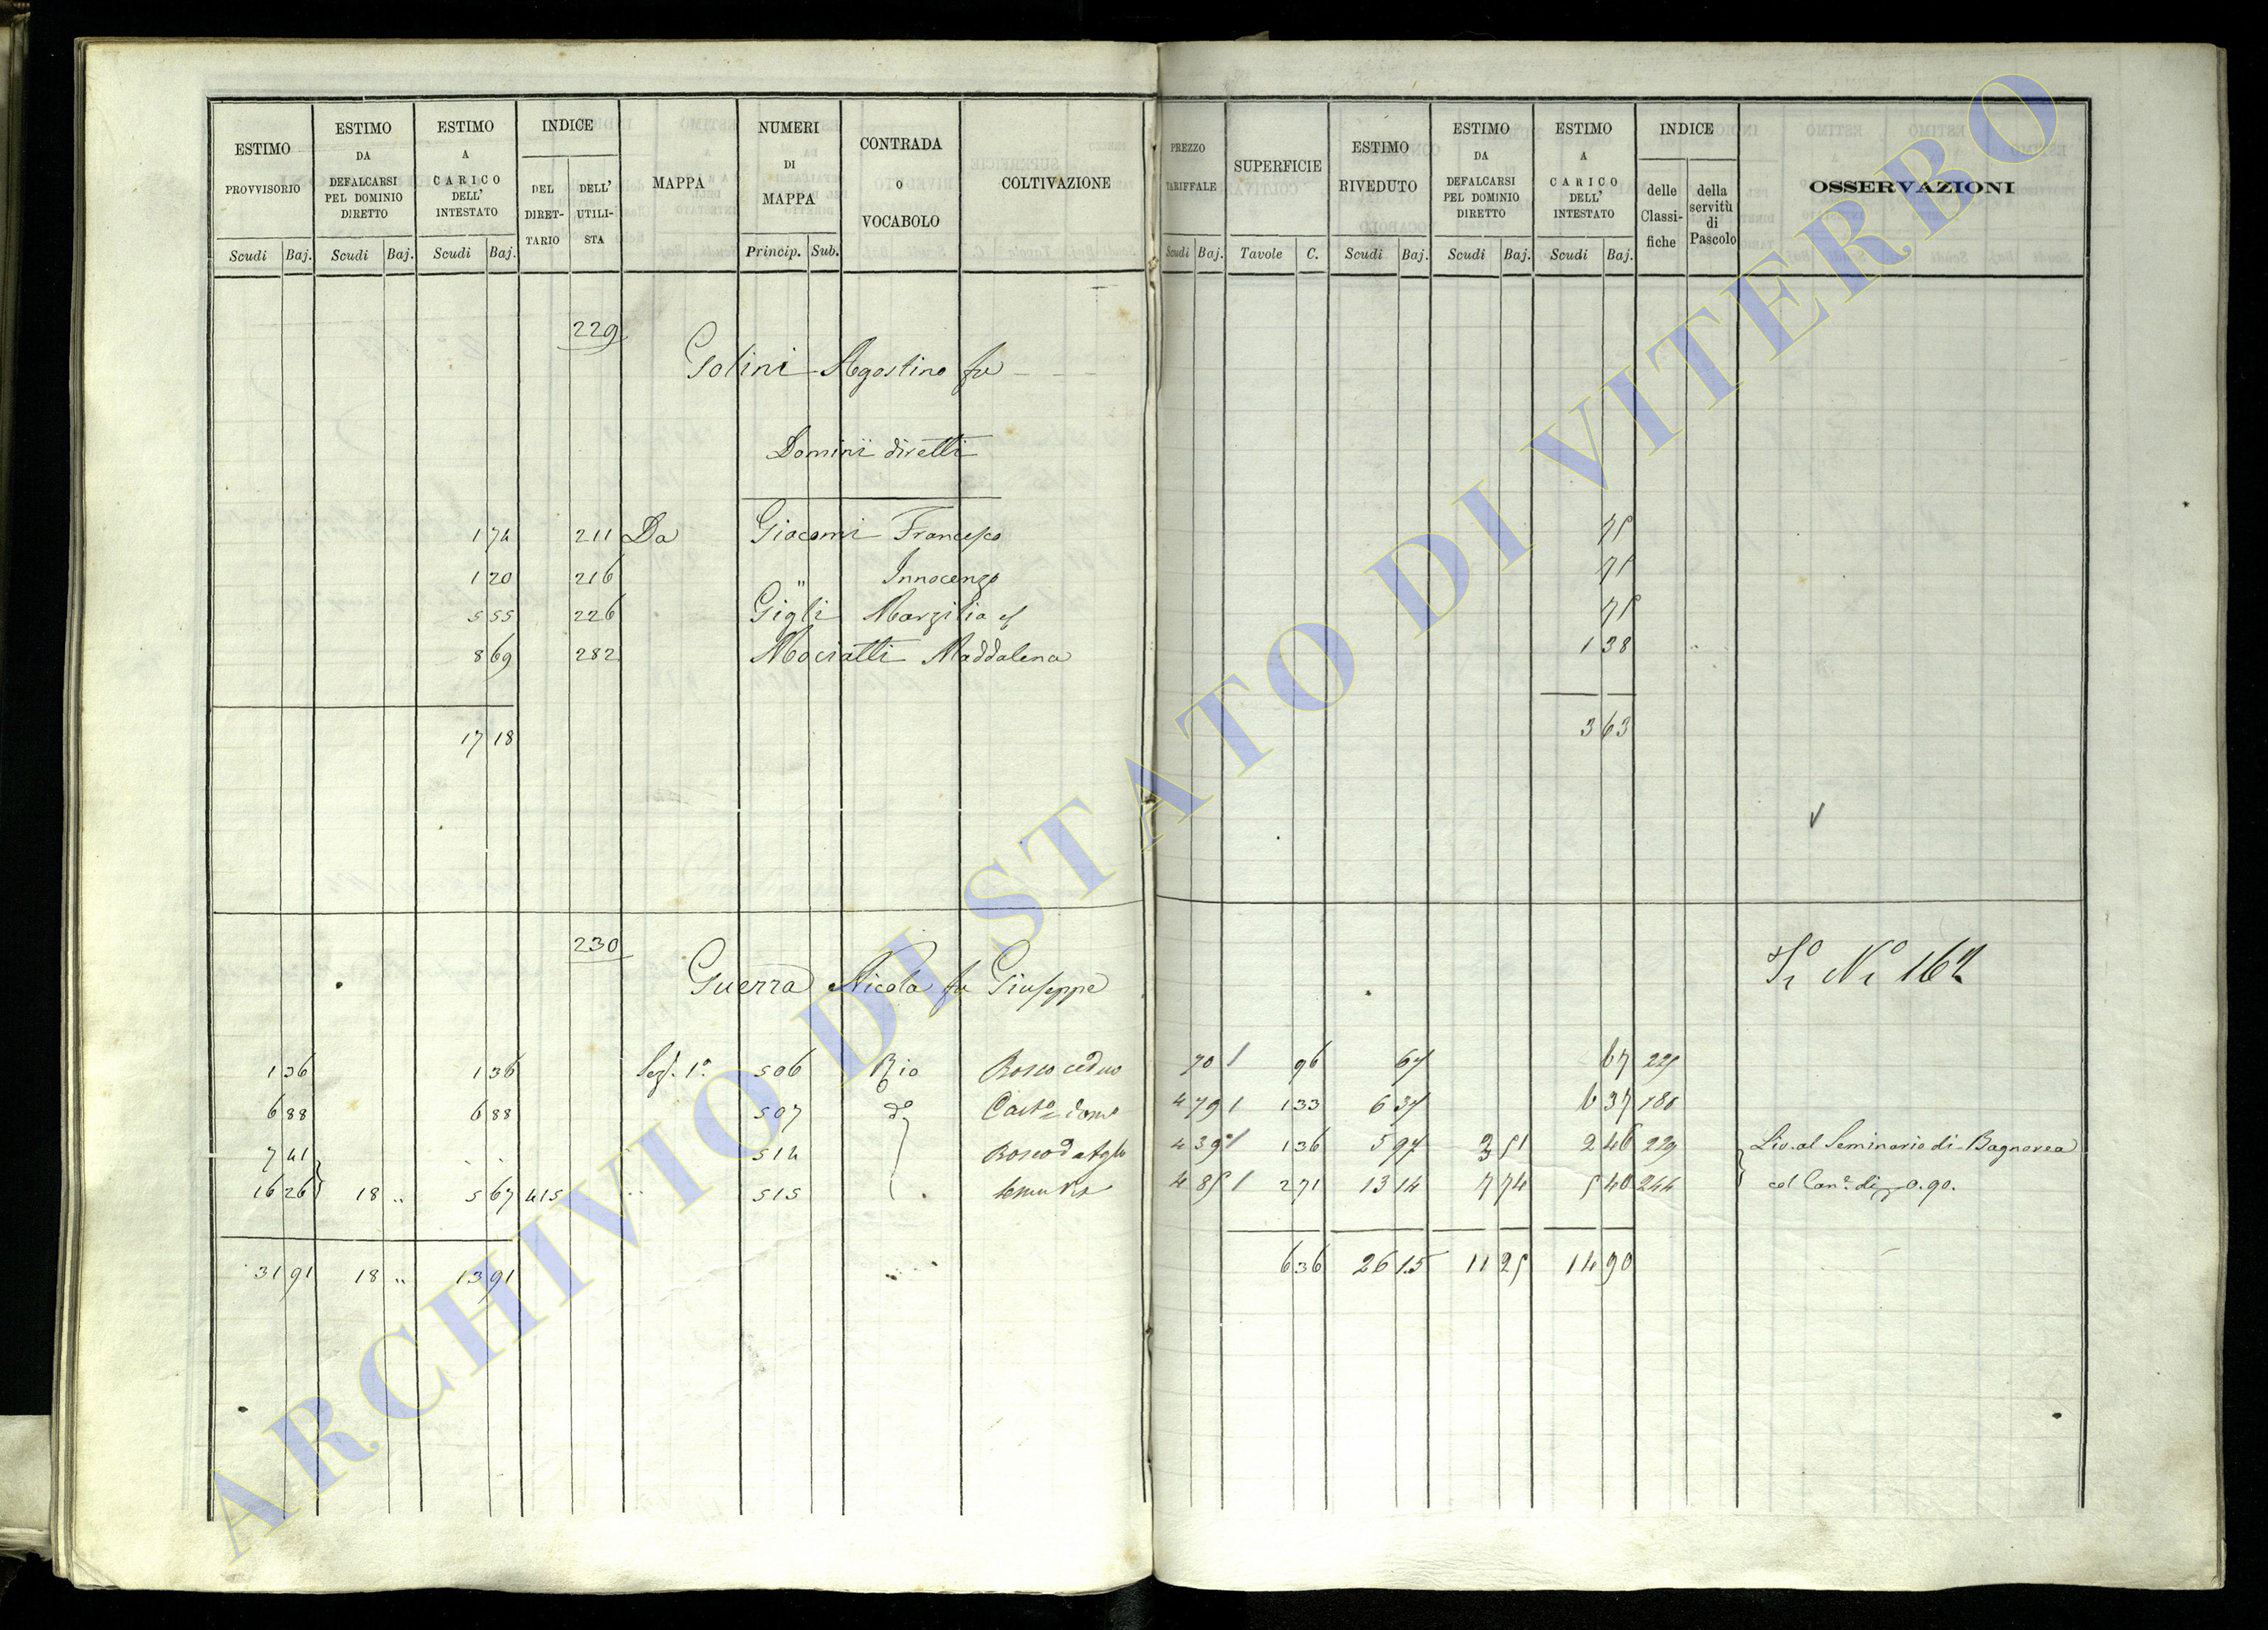 ESTIMO PROVVISORIO
ESTIMO DA DEFALCARSI PEL DOMINIO DIRETTO
ESTIMO A CARICO DELL' INTESTATO
INDICE
DEL DIRET-TARIO
DELL' UTILI-STA
MAPPA
NUMERI DI MAPPA
CONTRADA O VOCABOLO
COLTIVAZIONE
Scudi Baj. Scudi Baj. Scudi Baj. Princip. Sub.
PREZZO TARIFFALE
SUPERFICIE
ESTIMO RIVEDUTO
ESTIMO DA DEFALCARSI PEL DOMINIO DIRETTO
ESTIMO A CARICO DELL' INTESTATO
INDICE
delle Classi-fiche
della servitù di Pascolo
OSSERVAZIONI
Scudi Baj. Tavole C. Scudi Baj. Scudi Baj. Scudi Baj.
229
Golini Agostino fu
Dominii diretti
1 74 211 Da Giacomi Francesco 75
1 20 216 " Innocenzo 75
5 55 226 Gigli Marzilia 75
8 69 282 Mociatti Maddalena 1 38
17 18 3 63
230
Guerra Nicola fu Giuseppe
N° 167
1 36 1 36 Sez. 1a 506 Rio Bosco ceduo 70 1 96 67 67 225
6 88 6 88 507 do 4 79 1 133 6 37 6 37
7 41 514 4 39 1 136 5 97 3 51 2 46 229 Liv. al Seminario di Bagnorea
16 26 18 .. 5 67 415 515 4 85 1 271 13 14 7 74 5 40 244 col Can. di 0.90.
31 91 18 .. 13 91 6 36 26 15 11 25 14 90
ARCHIVIO DI STATO DI VITERBO